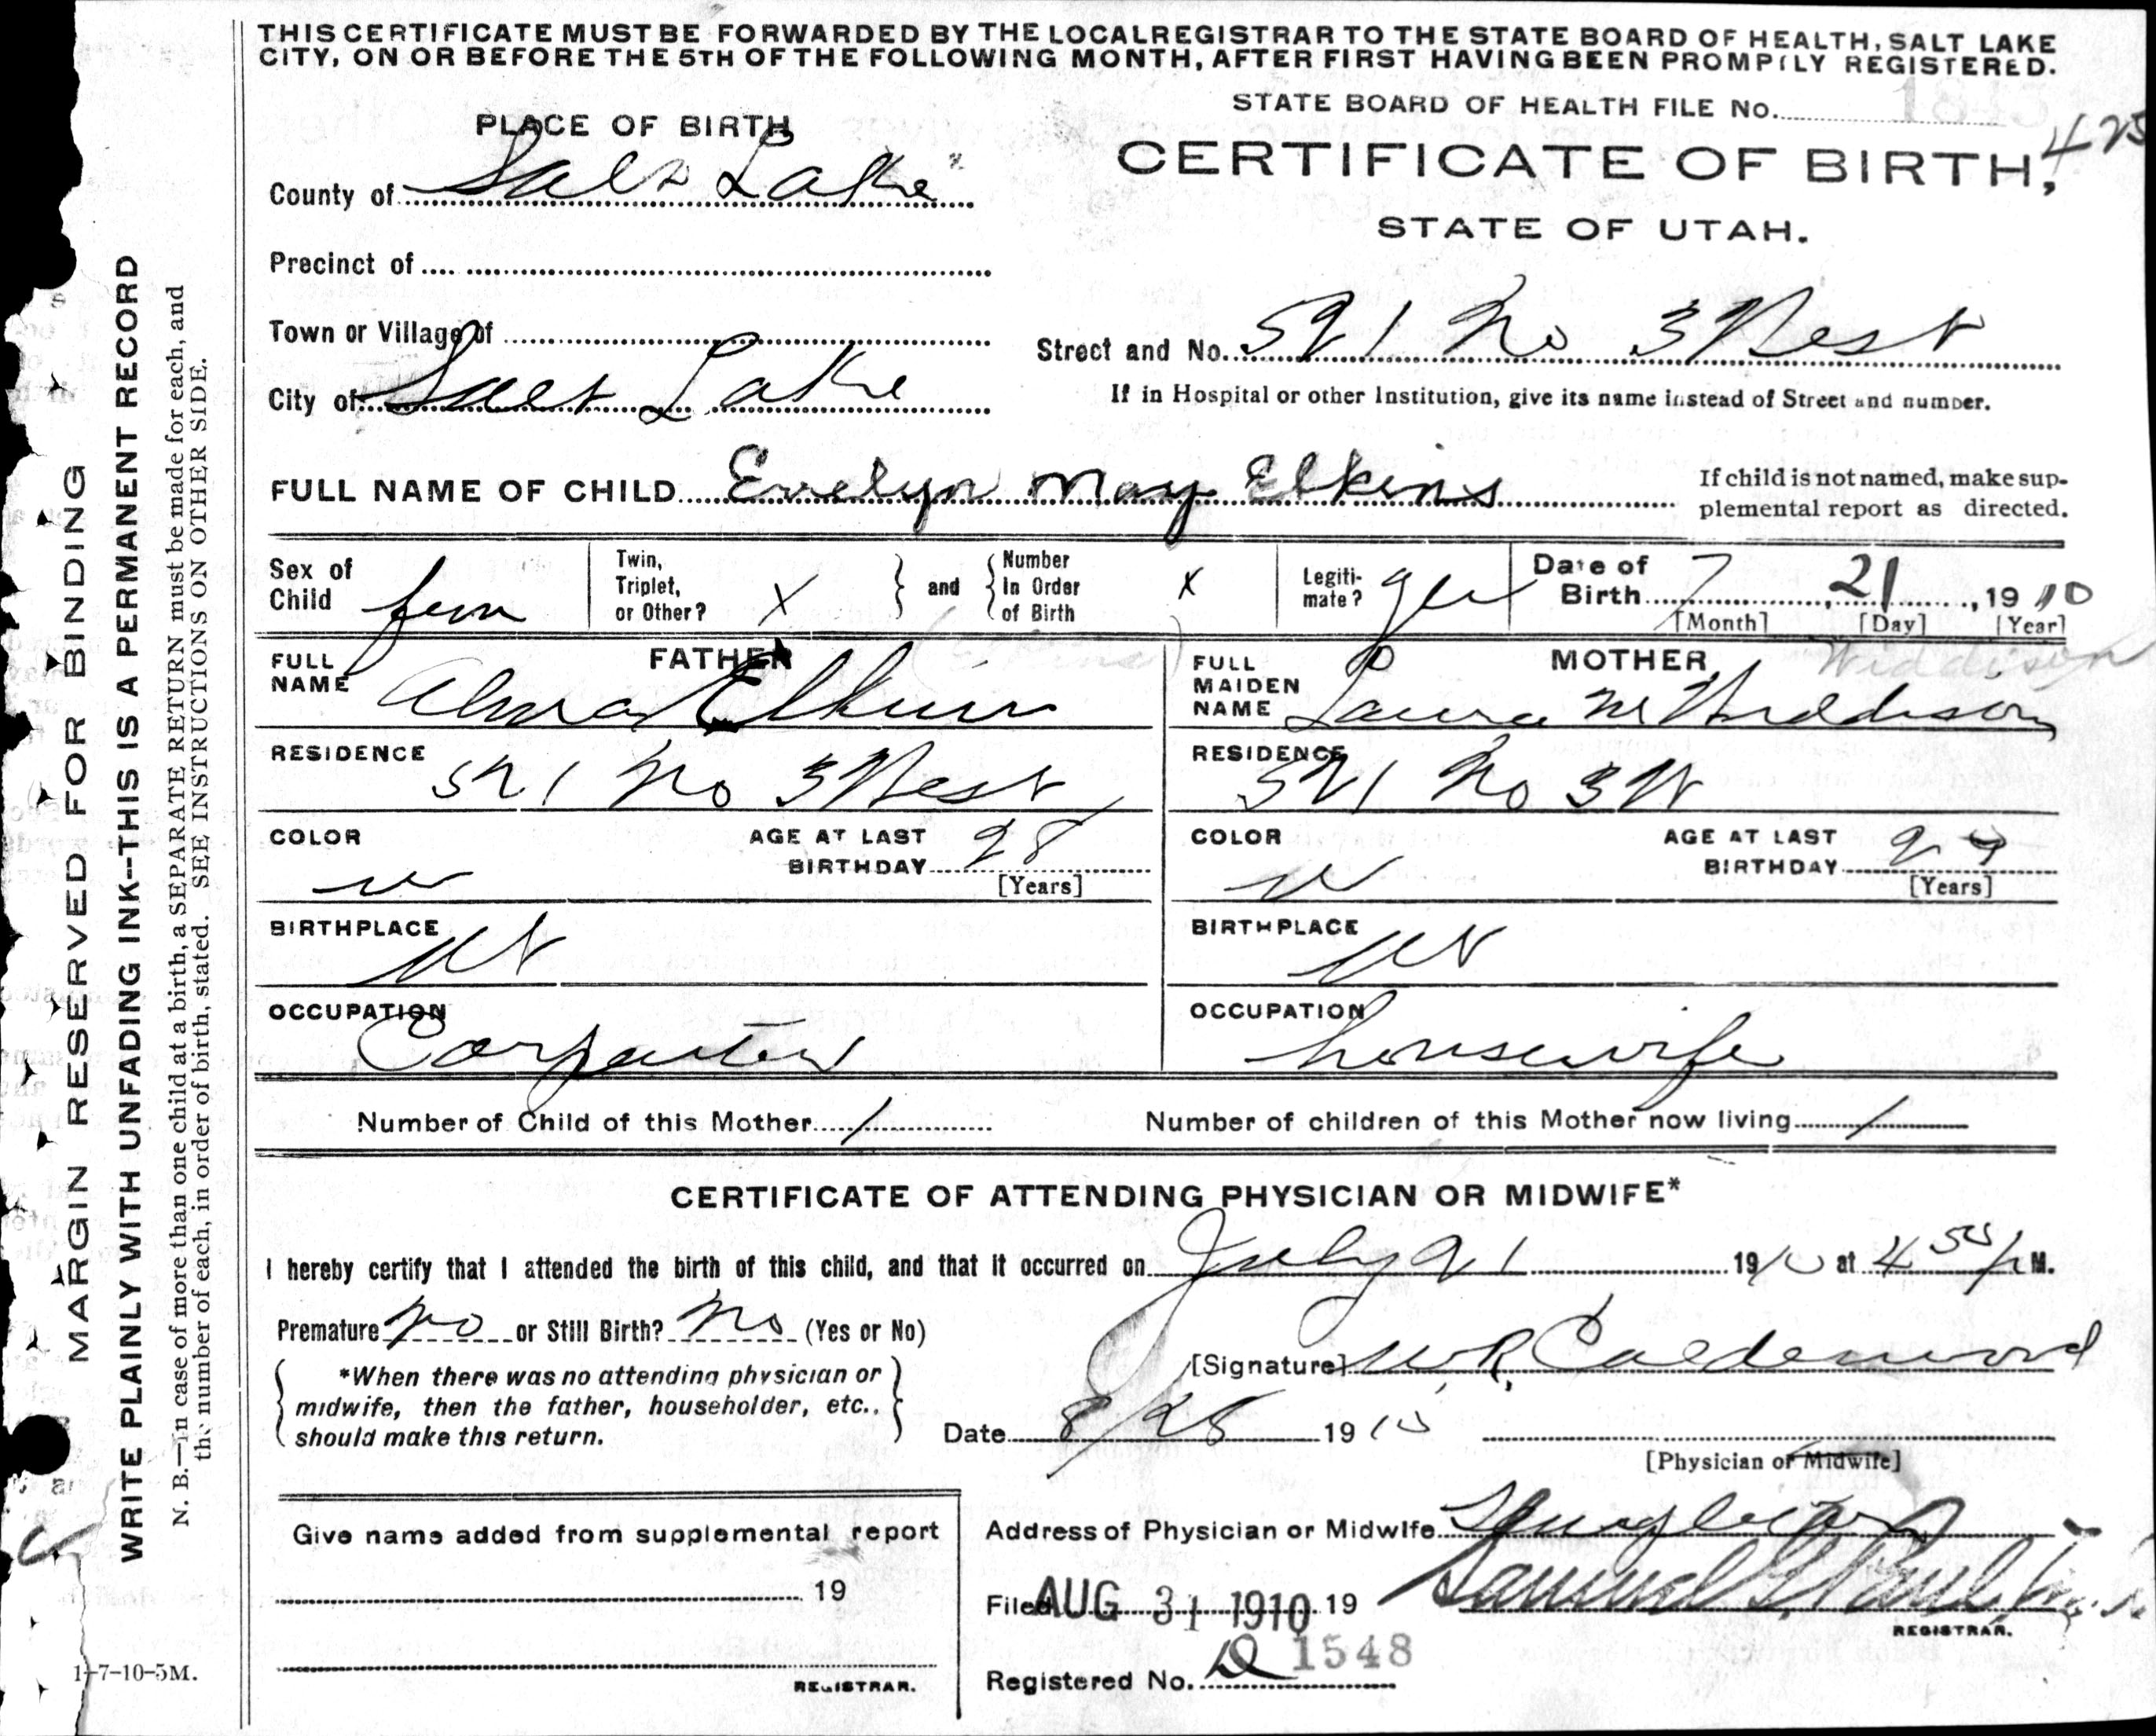 THIS CERTIFICATE MUST BE FORWARDED BY THE LOCAL REGISTRAR TO THE STATE BOARD OF HEALTH, SALT LAKE
CITY, ON OR BEFORE THE 5TH OF THE FOLLOWING MONTH, AFTER FIRST HAVING BEEN PROMPTLY REGISTERED.
STATE BOARD OF HEALTH FILE No.
425
PLACE OF BIRTH
CERTIFICATE OF BIRTH,
STATE OF UTAH.
County of Salt Lake
Precinct of
Town or Village of
Street and No. 521 No 3 West
City of Salt Lake
If in Hospital or other Institution, give its name instead of Street and number.
FULL NAME OF CHILD Evelyn May Elkins
If child is not named, make sup-
plemental report as directed.
Sex of Child fem
Twin, Triplet, or Other? X and Number In Order of Birth X
Legiti-mate? yes
Date of Birth 7 21, 1910
[Month] [Day] [Year]
FATHER (Elkins)
FULL NAME Alma Elkins
MOTHER Widdison
FULL MAIDEN NAME Laura M Widdison
RESIDENCE 521 No 3 West
RESIDENCE 521 No 3 W
COLOR w
AGE AT LAST BIRTHDAY 28
[Years]
COLOR W
AGE AT LAST BIRTHDAY
[Years]
BIRTHPLACE Ut
BIRTHPLACE Ut
OCCUPATION Carpenter
OCCUPATION housewife
Number of Child of this Mother 1
Number of children of this Mother now living 1
CERTIFICATE OF ATTENDING PHYSICIAN OR MIDWIFE*
I hereby certify that I attended the birth of this child, and that it occurred on July 21 1910 at 4 50 P M.
Premature no or Still Birth? No (Yes or No)
[Signature] W.R. Calderwood
*When there was no attending physician or
midwife, then the father, householder, etc.,
should make this return.
Date 8/28 1910
[Physician or Midwife]
Give name added from supplemental report
19
REGISTRAR.
Address of Physician or Midwife
Filed AUG 31 1910 19 Samuel G. Paul
REGISTRAR.
Registered No. 1548
MARGIN RESERVED FOR BINDING
WRITE PLAINLY WITH UNFADING INK--THIS IS A PERMANENT RECORD
N. B.—In case of more than one child at a birth, a SEPARATE RETURN must be made for each, and
the number of each, in order of birth, stated. SEE INSTRUCTIONS ON OTHER SIDE.
1-7-10-5M.